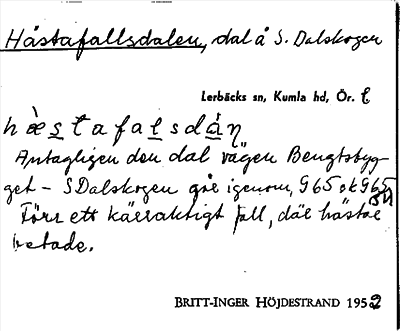 Hästafallsdalen, dal å S. Dalskogen
Lerbäcks sn, Kumla hd, Ör. l
hæ̀stafalsdàn̥
Antagligen den dal vägen Bengtsbyg-
get - S Dalskogen går igenom, G65 ok G65
Förr ett kärraktigt fall, där hästar
betade.
BRITT-INGER HÖJDESTRAND 1952